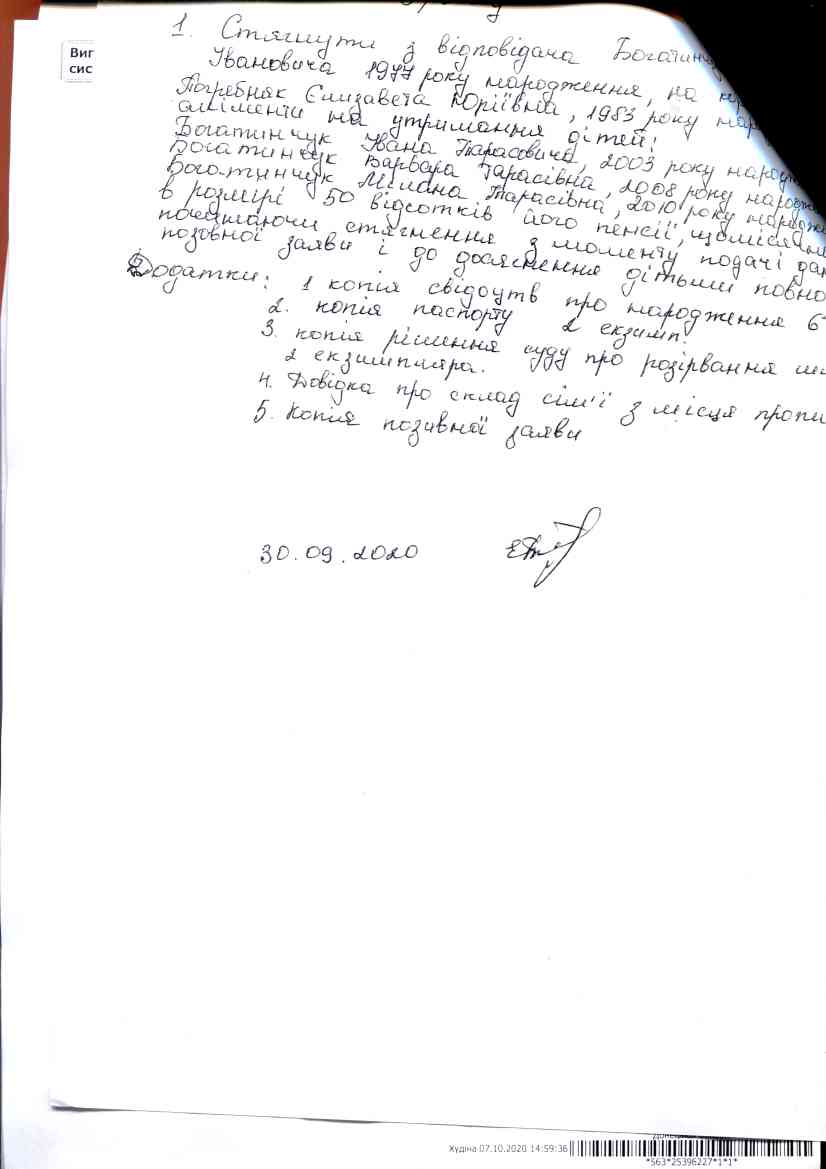 1. Стягнути з відповідача Богатинчу
Івановича 1977 року народження, на
Погребняк Єлизавета Юріївна, 1983 року нар
аліменти на утримання дітей:
Богатинчук Івана Тарасовича, 2003 року народж
Богатинчук Варвара Тарасівна, 2008 року народж
Богатинчук Мілана Тарасівна, 2010 року народже
в розмірі 50 відсотків його пенсії, щомісячн
починаючи стягнення з моменту подачі дан
позовної заяви і до досягнення дітьми повно
Додатки: 1 копія свідоцтв про народження 6
2. копія паспорту 2 екземп.
3. копія рішення суду про розірвання ш
2 екземпляра.
4. Довідка про склад сім'ї з місця пропи
5. Копія позивної заяви
30.09.2020
Виг
сис
Худіна 07.10.2020 14:59:36
*563*25396227*1*1*